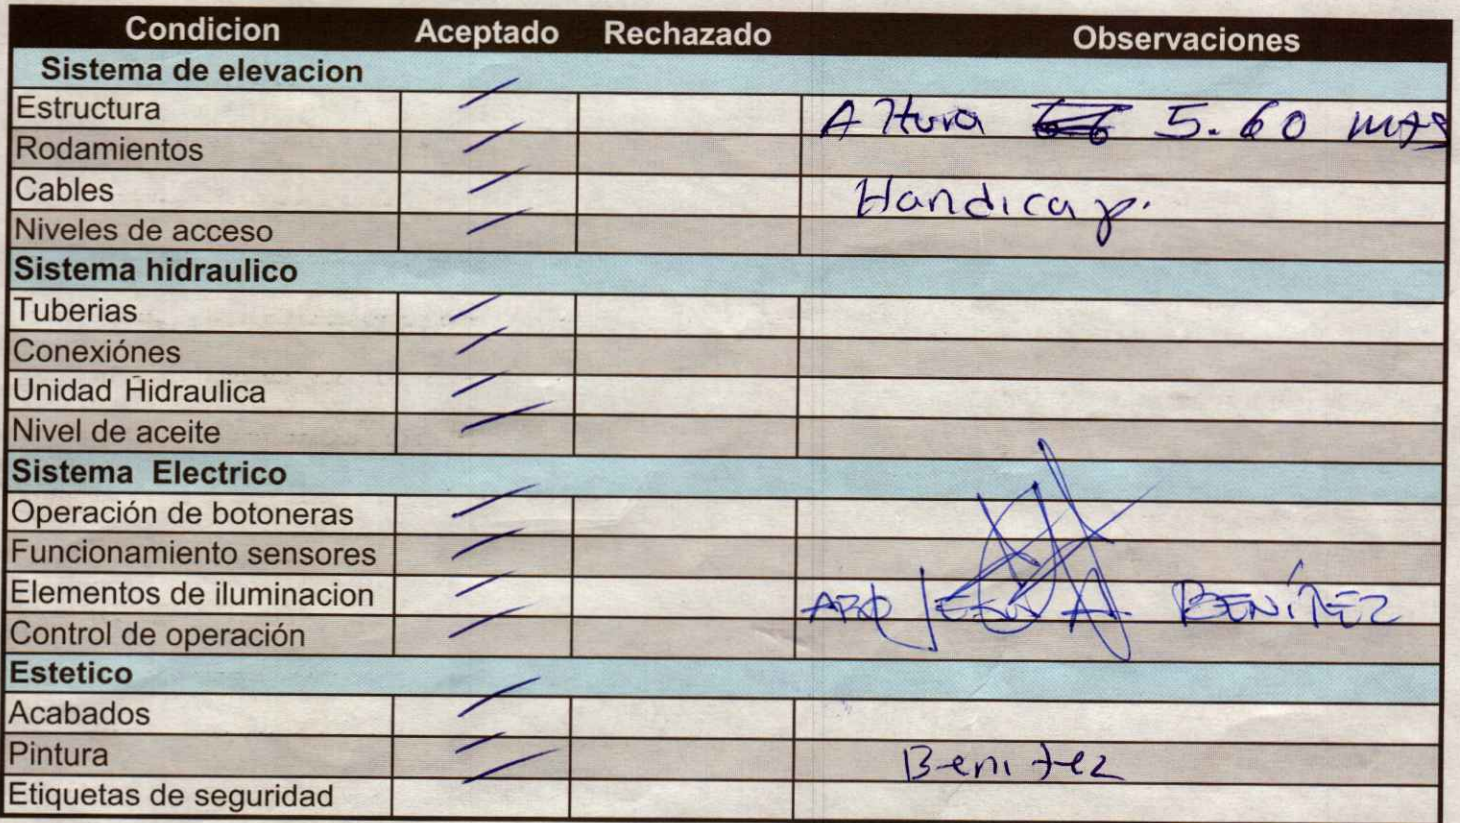 Condicion Aceptado Rechazado Observaciones
Sistema de elevacion
Estructura
Altura 5.60 mts
Rodamientos
Cables
Handicap.
Niveles de acceso
Sistema hidraulico
Tuberias
Conexiónes
Unidad Hidraulica
Nivel de aceite
Sistema Electrico
Operación de botoneras
Funcionamiento sensores
Elementos de iluminacion
ARQ A BENÍTEZ
Control de operación
Estetico
Acabados
Pintura
Benitez
Etiquetas de seguridad